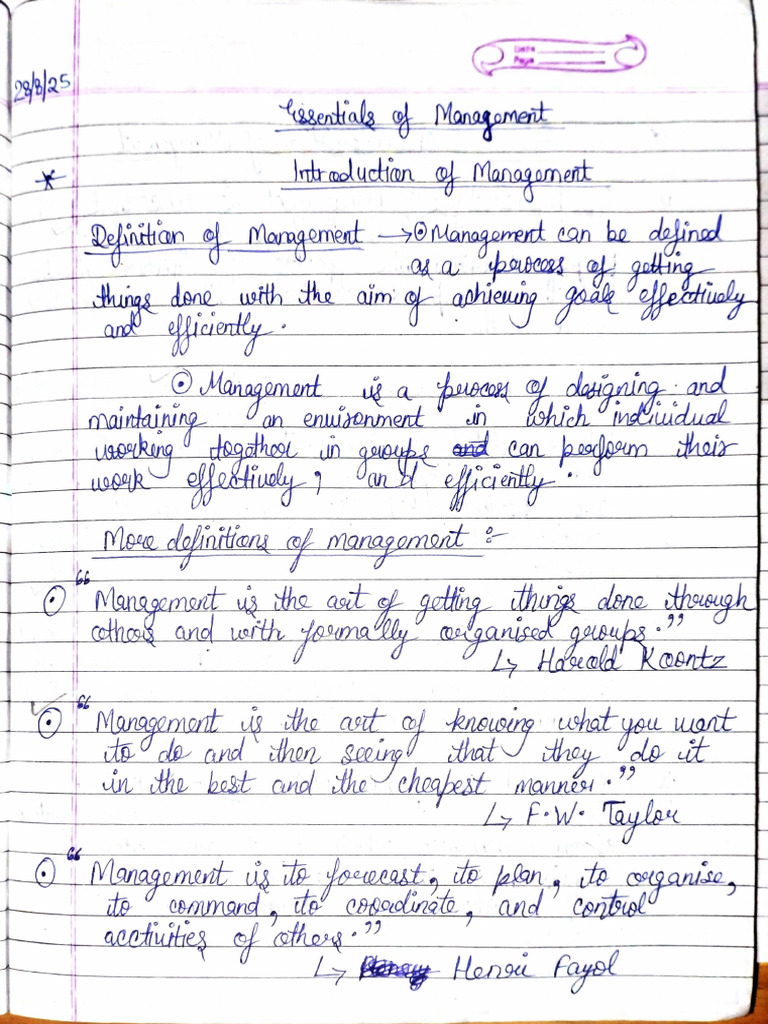 Date
Page
28/8/25
Essentials of Management
Introduction of Management
Definition of Management → Management can be defined
as a process of getting
things done with the aim of achieving goals effectively
and efficiently.
Management is a process of designing and
maintaining an environment in which individual
working togather in groups and can perform their
work effectively, and efficiently.
More definitions of management :-
"Management is the art of getting things done through
others and with formally organised groups."
↳ Harold Koontz
"Management is the art of knowing what you want
to do and then seeing that they do it
in the best and the cheapest manner."
↳ F.W. Taylor
"Management is to forecast, to plan, to organise,
to command, to cooordinate, and control
acctivities of others."
↳ Henri Fayol